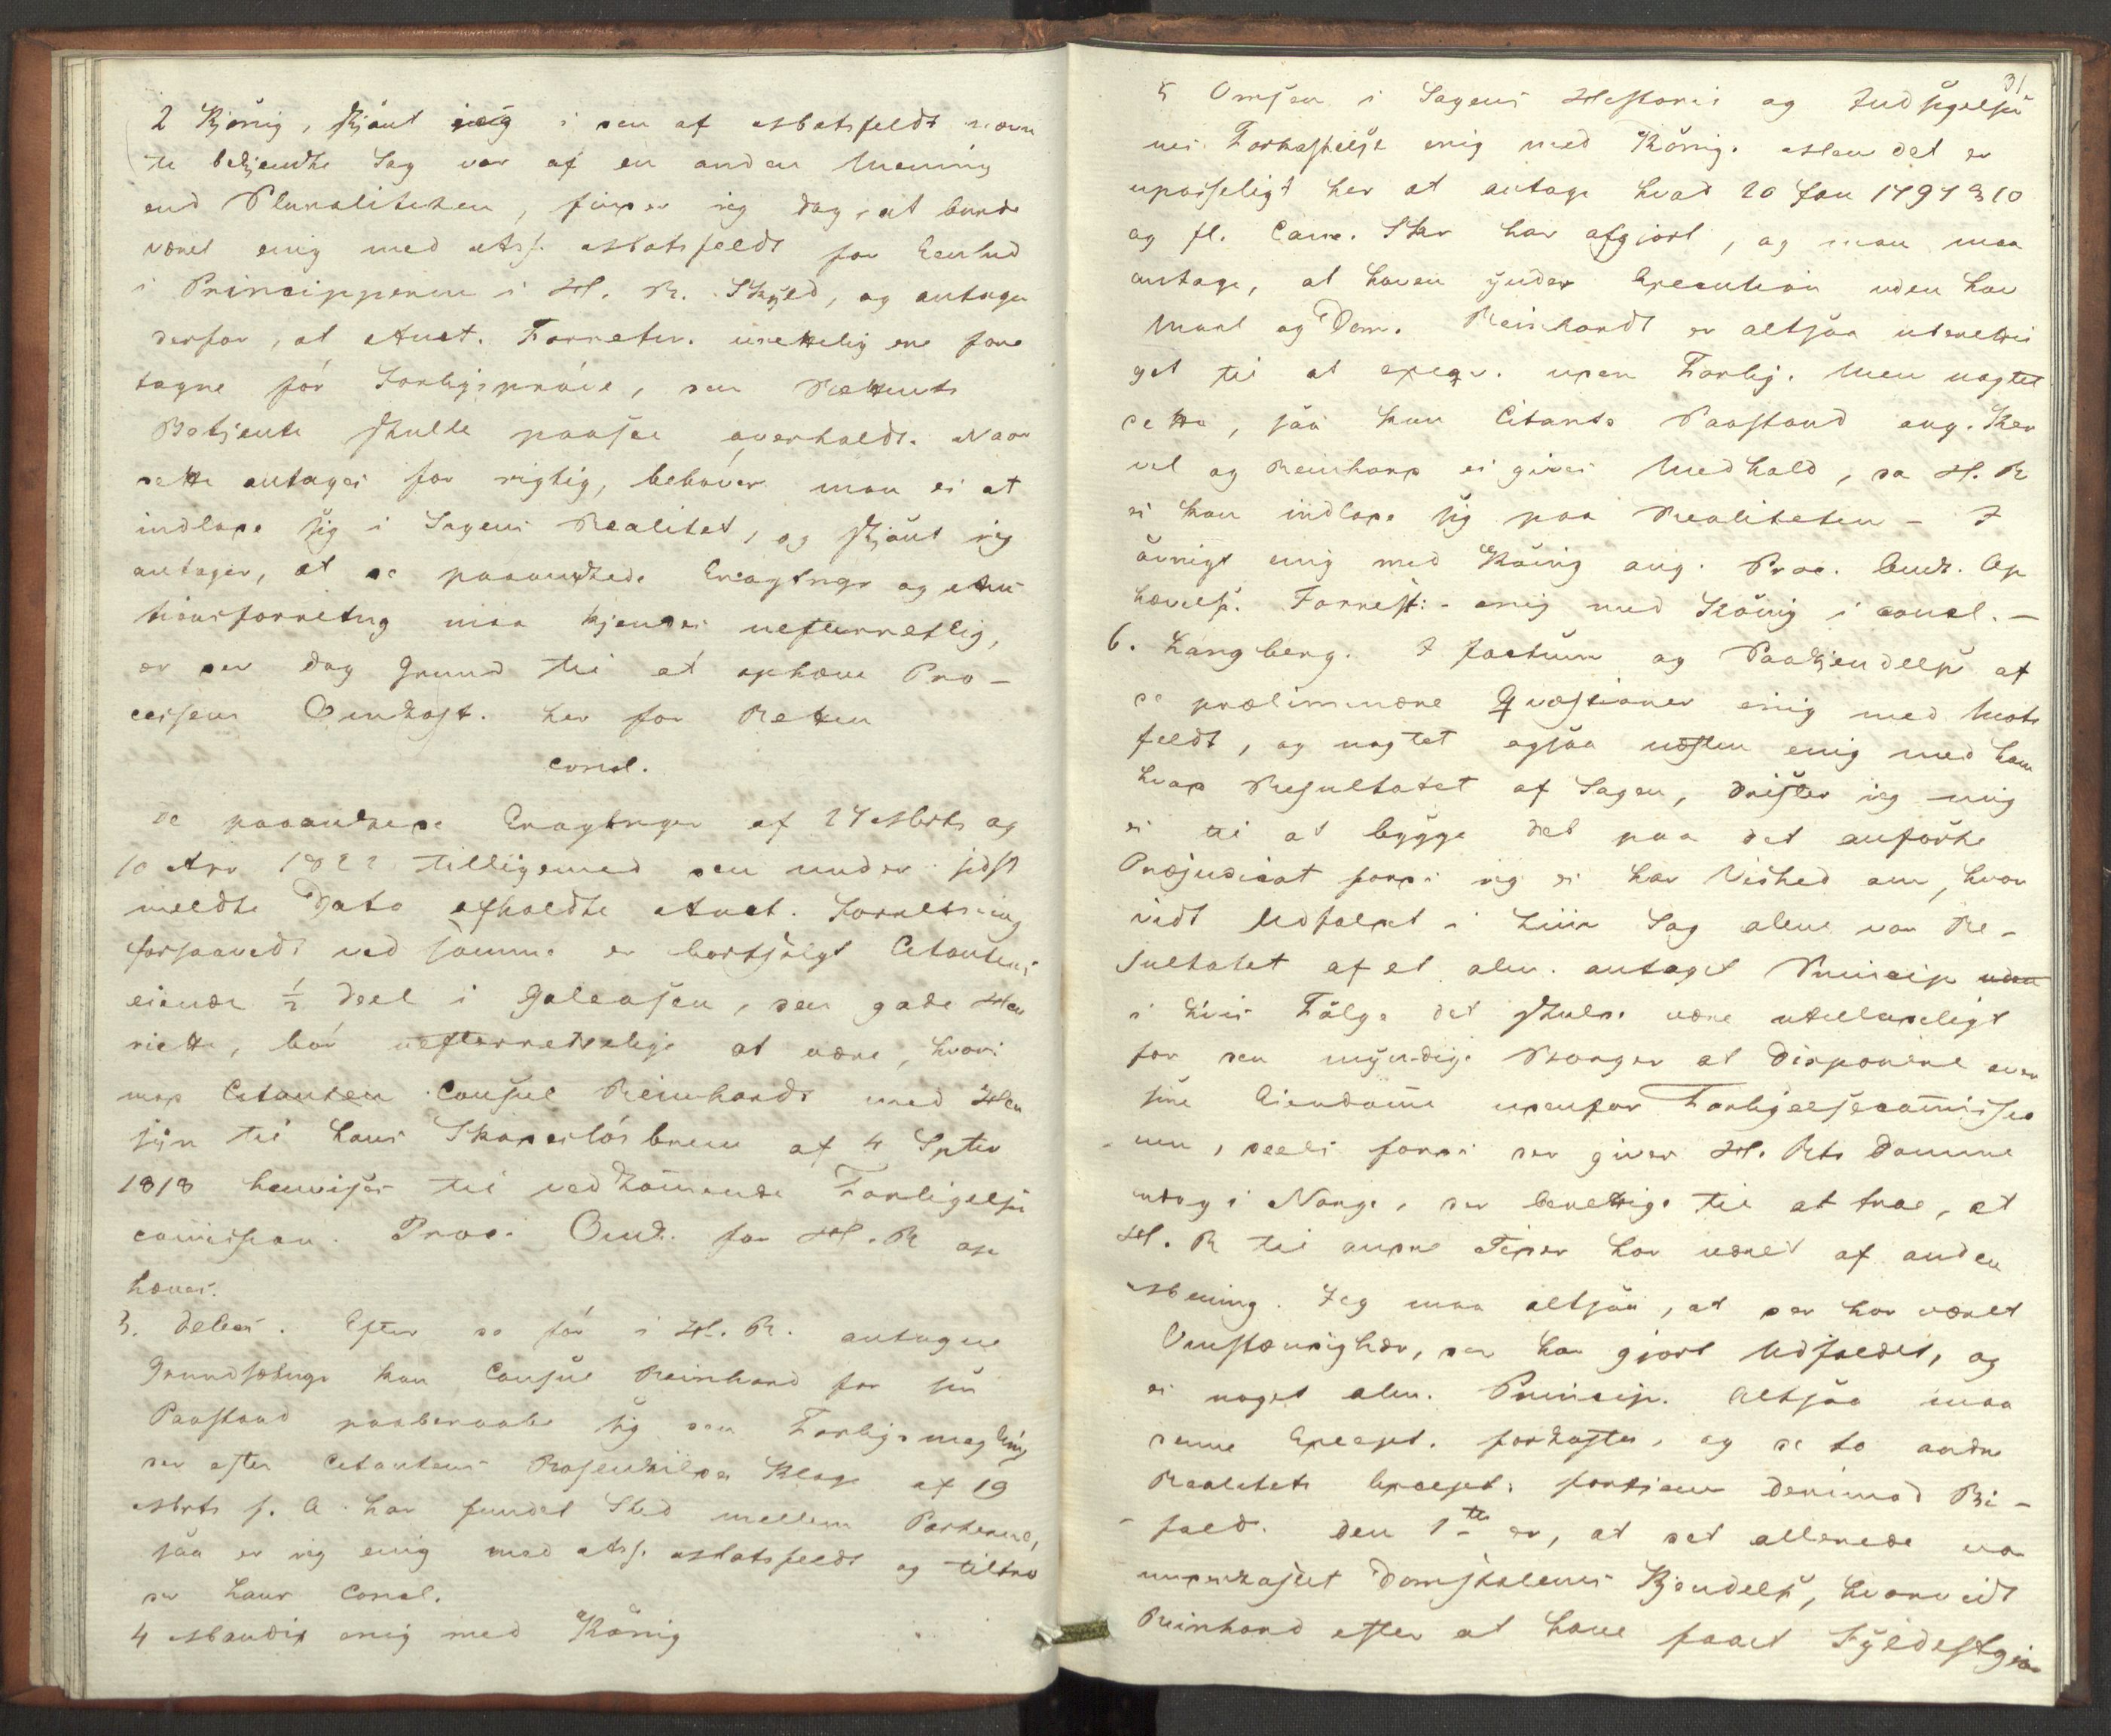 2 Kjönig, skjönt jeg i den af Motzfeldt nævn
te bekjendte Sag var af en anden Mening
end Pluraliteten, finder jeg dog, at burde
været enig med Ass. Motzfeldt for Eenhed
i Principperne i H. R. Skyld, og antager
derfor, at Auct. Forretn. urettelig ere fore
tagne för Forligspröve, som Rettens
Betjente skulle paasee overholdt. Naar
dette antages for rigtig, behöver man ei at
indlade sig i Sagens Realitet, og skjönt jeg
antager, at de paaankede Eragtngr og Auc
tionsforretng maa kjendes uefterretlig,
er der dog Grund til at ophæve Pro-
cessens Omkost. her for Retten
concl.
De paaankede Eragtngr af 27 Marts og
10 Apr 1822 tilligemed den under sidst
meldte Dato afholdte Auct. Forretning
forsaavidt ved samme er bortsolgt Citantens
eiende ½ Deel i Galeasen, den gode Hen
riette, bör uefterrettelige at være, hvori
mod Citanten Consul Reinhardt med Hen
syn til hans Skadeslösbrev af 4 Septbr
1818 henvises til vedkommende Forligelses
comission. Proc. Omk. for H. R op
hæves.
3. Debes. Efter de för i H. R. antagne
Grundsætngr kan Consul Reinhard for sin
Paastand paaberaabe sig den Forligsmægling
der efter Citantens Rosenkildes Klage af 19
Marts f. A. har fundet Sted mellem Parterne,
saa er jeg enig med Ass. Motzfeldt og tiltræ
der hans Concl.
4 Mandix enig med König
31
5 Omsen i Sagens Historie og Indsigelser
nes Forkastelse enig med König. Men det er
upasseligt her at antage hvad 20 Jan 1797 § 10
og fl. Canc. Skr har afgjort, og man maa
antage, at Loven yder Execution uden Lov
maal og Dom. Reinhardt er altsaa uberetti
get til at exeqv. uden Forlig. Men uagtet
dette, saa kan Citants Paastand ang.
vel og Reinhard ei gives Medhold, da H. R
ei kan indlade sig paa Realiteten – I
övrigt enig med König ang. Proc. Omk. Op
hævels. Forrest: – enig med König i concl. –
6. Langberg. I factum og Paakjendelse af
de prælimenære Qvæstioner enig med Motz
feldt, og uagtet ogsaa næsten enig med ham
hvad Resultatet af Sagen, drister jeg mig
ei til at bygge det paa det anförte
Præjudicat fordi jeg ei har Vished om, hvor
vidt Udfaldet i hiin Sag alene var Re-
sultatet af et alm. antaget Princip uden
i hvis Fölge det skulde være utilladeligt
for den myndige Borger at disponere over
sine Eiendomme udenfor Forligelsescomissio
nen, deels fordi der gives H. Rts Domme
ndog i Norge, der berettige til at troe, at
H. R til andre Tider har været af anden
Mening. Jeg maa altsaa, at der har været
Omstændighder, der har gjort Udfaldet, og
ei noget alm. Princip. Altsaa maa
denne Except. forkastes, og de to andre
Realitets Except. fortjene derimod Bi-
fald. Den 1ste er, at det allerede var
underkastet Domstolenes Kjendelse, hvorvidt
Reinhard efter at have faaet Fyldestgiö